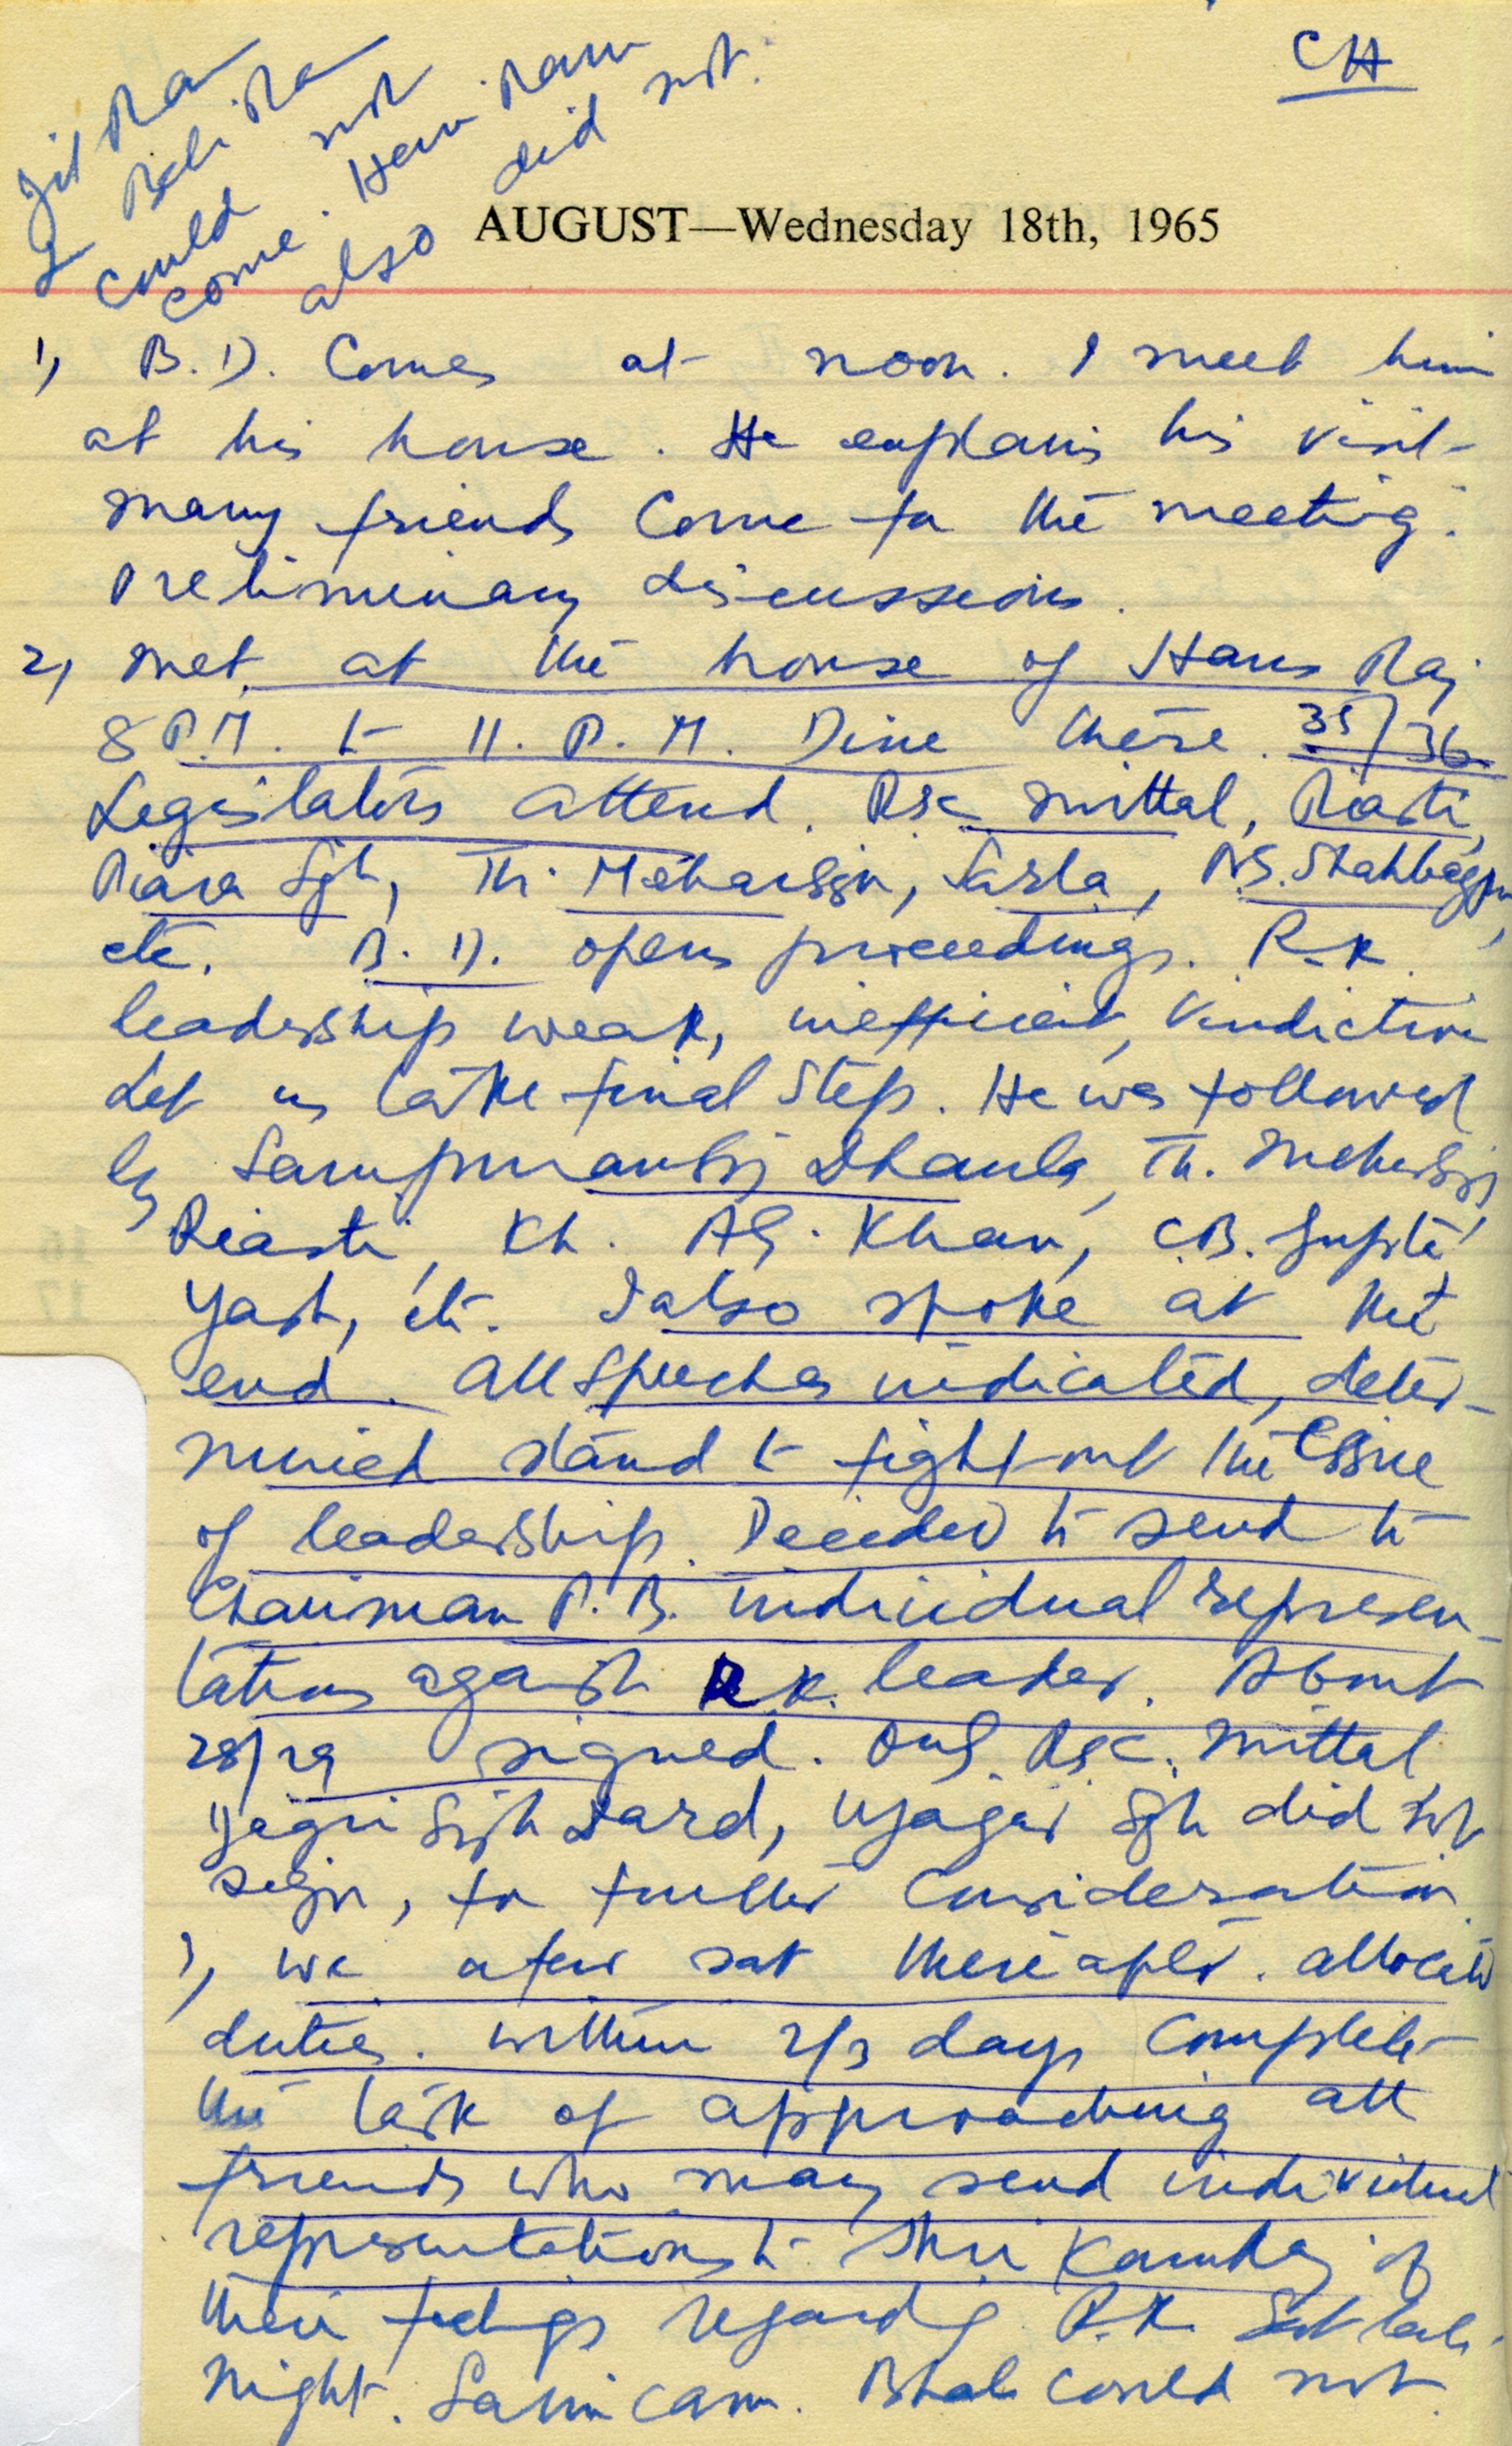 CH
Jit Ram
& Beli Ram
could not
come. Hari Ram
also did not.
AUGUST—Wednesday 18th, 1965
1) B.D. Comes at noon. I meet him
at his house. He explains his visit
many friends come for the meeting.
Preliminary discussions.
2) Met at the house of Hans Raj
8 P.M. to 11. P.M. Dine there. 35/36
Legislators attend. Mittal, Riasti,
Piara Sgh, Th. Mehar Sgh, Sarla,
etc. B.D. opens proceedings. R.K.
leadership weak, inefficient, vindictive
Let us take final step. He was followed
by Sampuran Sgh Dhaula, Th. Mehar Sgh,
Riasti, Kh. A.G. Khan, C.B. Gupta,
Yash, etc. I also spoke at the
end. All speeches indicated, deter-
mined stand to fight out the issue
of leadership. Decided to send to
Chairman P.B. individual represen-
tations against R.K. leader. About
28/29 signed. Only Mittal,
Sgh Dard, Ujagar Sgh did not
sign, for further consideration.
3) We a few sat thereafter. allocated
duties. within 2/3 days complete
the task of approaching all
friends who may send individual
representations to Shri Kamraj of
their feelings regarding R.K. Sat late
night. came. could not.